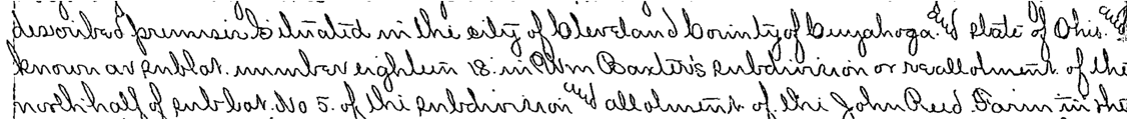 described premises Situated in the city of Cleveland County of Cuyahoga and state of Ohio. and
known as sublot. number eighteen 18. in Wm Baxter's subdivision or reallotment. of the
north half of sublot. No 5. of the subdivision and allotment. of the John Reed Farm in the